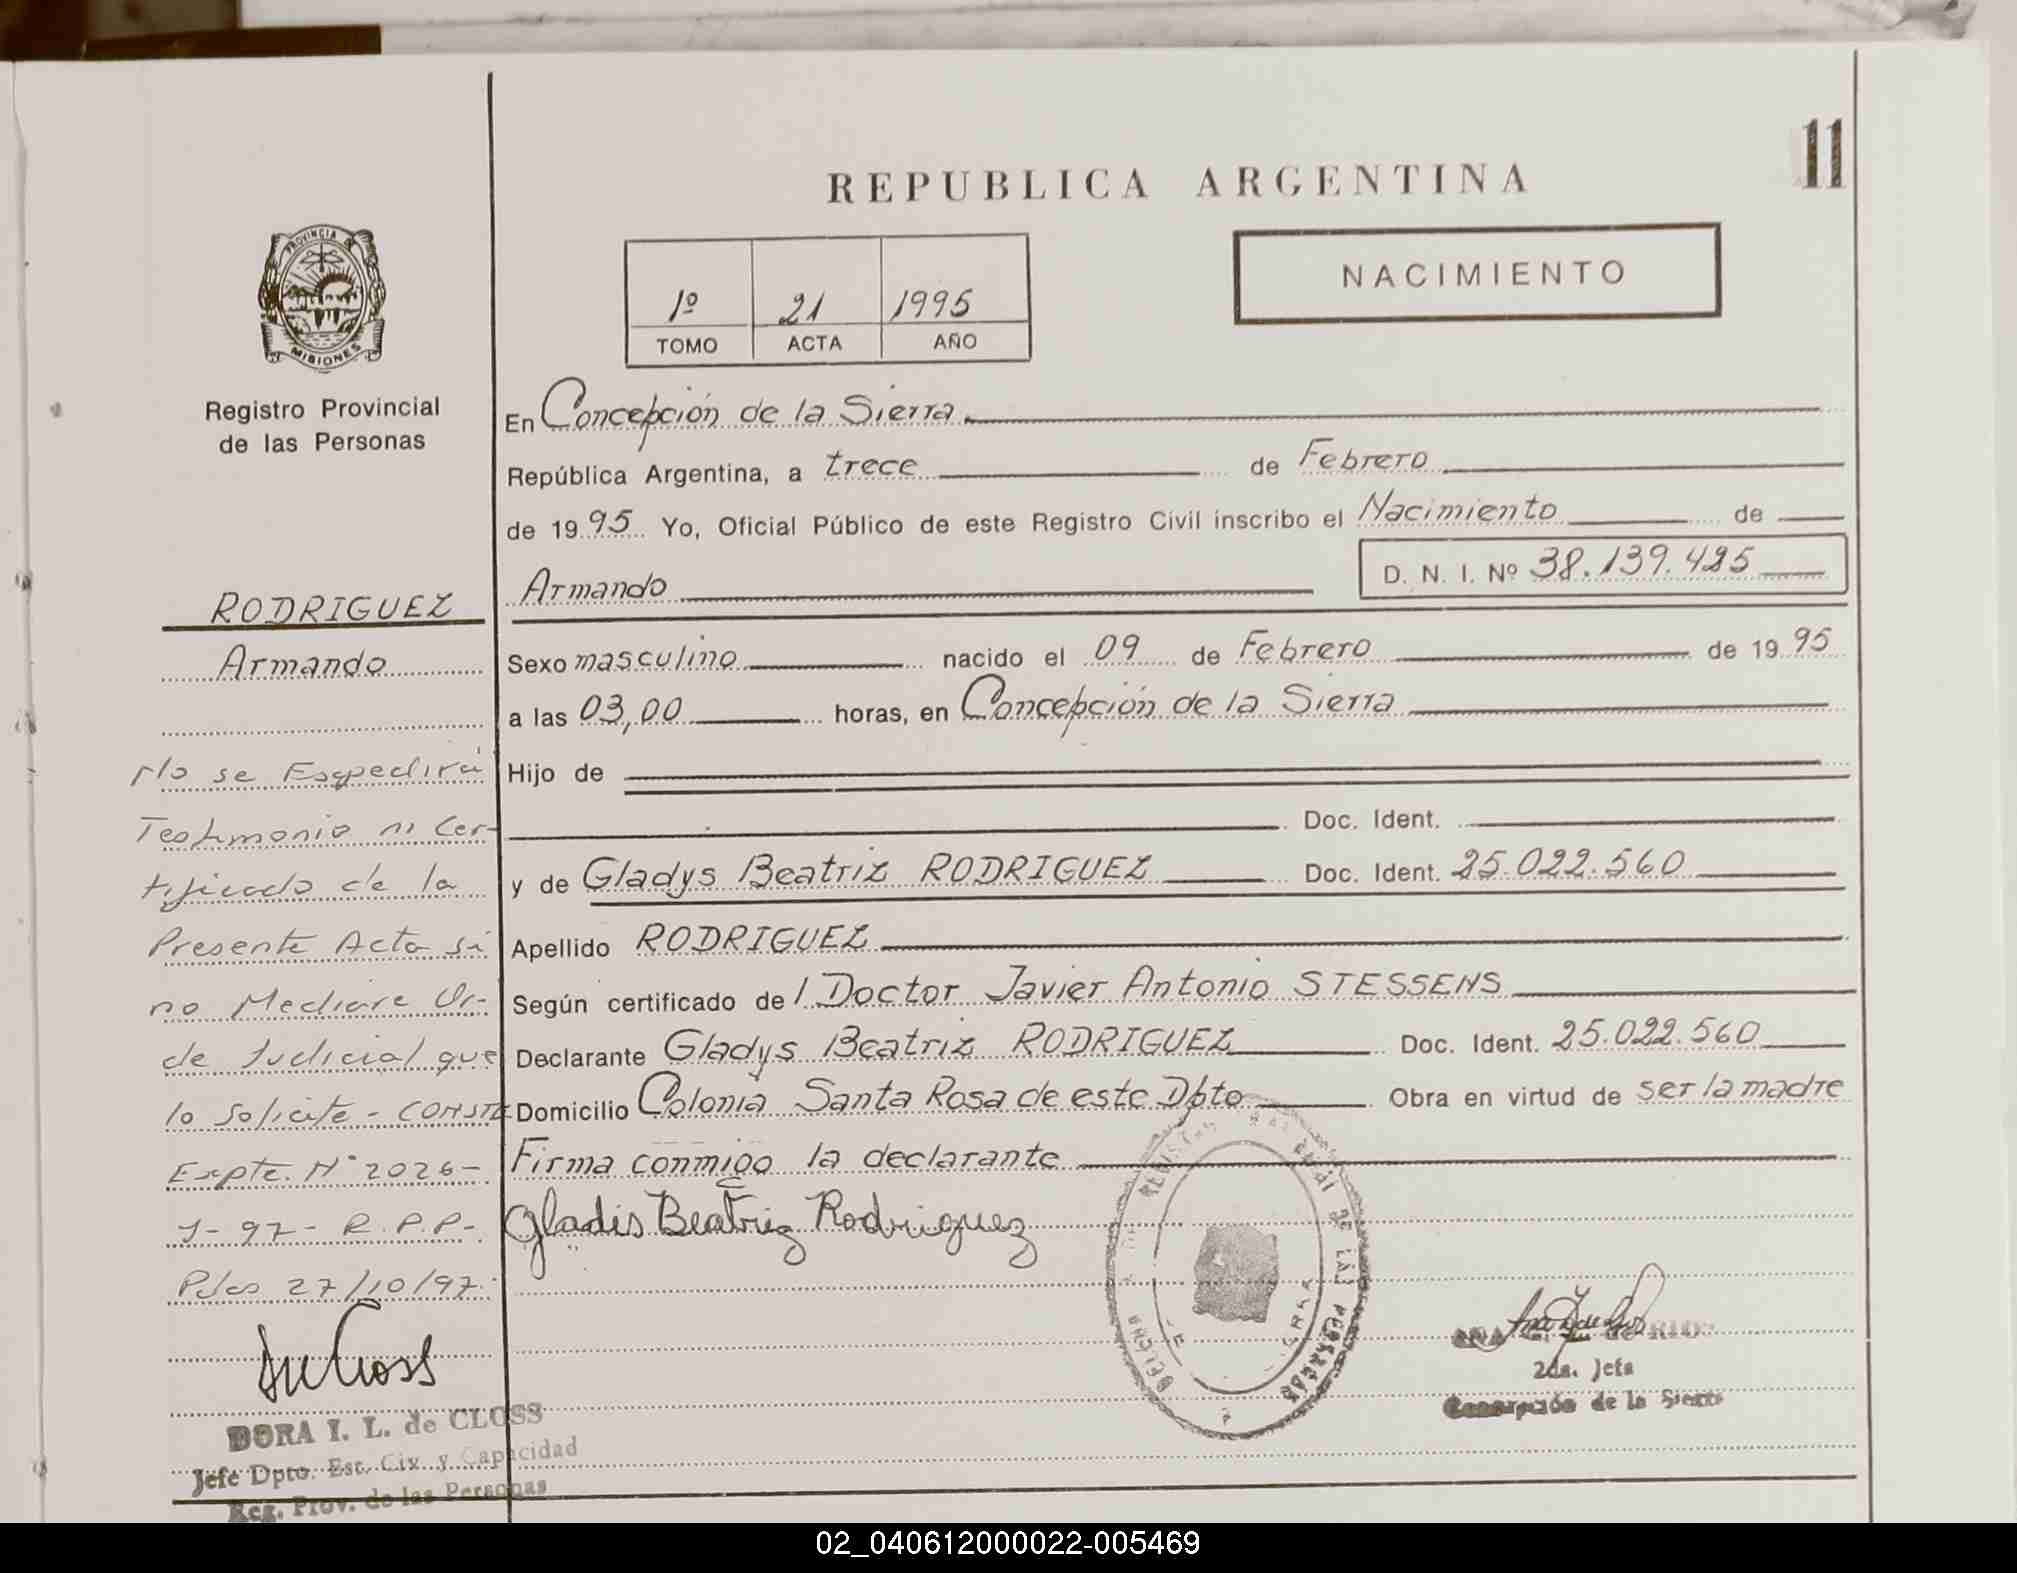 REPUBLICA ARGENTINA
11
PROVINCIA DE
MISIONES
Registro Provincial
de las Personas
1º 21 1995
TOMO ACTA AÑO
NACIMIENTO
En Concepción de la Sierra
República Argentina, a trece de Febrero
de 1995 Yo, Oficial Público de este Registro Civil inscribo el Nacimiento de
Armando D. N. I. Nº 38.139.425
Sexo masculino nacido el 09 de Febrero de 1995
a las 03,00 horas, en Concepción de la Sierra
Hijo de
Doc. Ident.
y de Gladys Beatriz RODRIGUEZ Doc. Ident. 25.022.560
Apellido RODRIGUEZ
Según certificado de l Doctor Javier Antonio STESSENS
Declarante Gladys Beatriz RODRIGUEZ Doc. Ident. 25.022.560
Domicilio Colonia Santa Rosa de este Dpto Obra en virtud de ser la madre
Firma conmigo la declarante
Gladis Beatriz Rodriguez
RODRIGUEZ
Armando
No se Expedirá
Testimonio ni Cer-
tificado de la
Presente Acta si
no Mediare Or-
de Judicial que
lo Solicite - CONSTE
Expte. Nº 2026-
J-97- R.P.P-
Pdas 27/10/97.
DORA I. L. de CLOSS
Jefe Dpto. Est. Civ. y Capacidad
Reg. Prov. de las Personas
de RIOS
2da. Jefa
Concepción de la Sierra
02_040612000022-005469